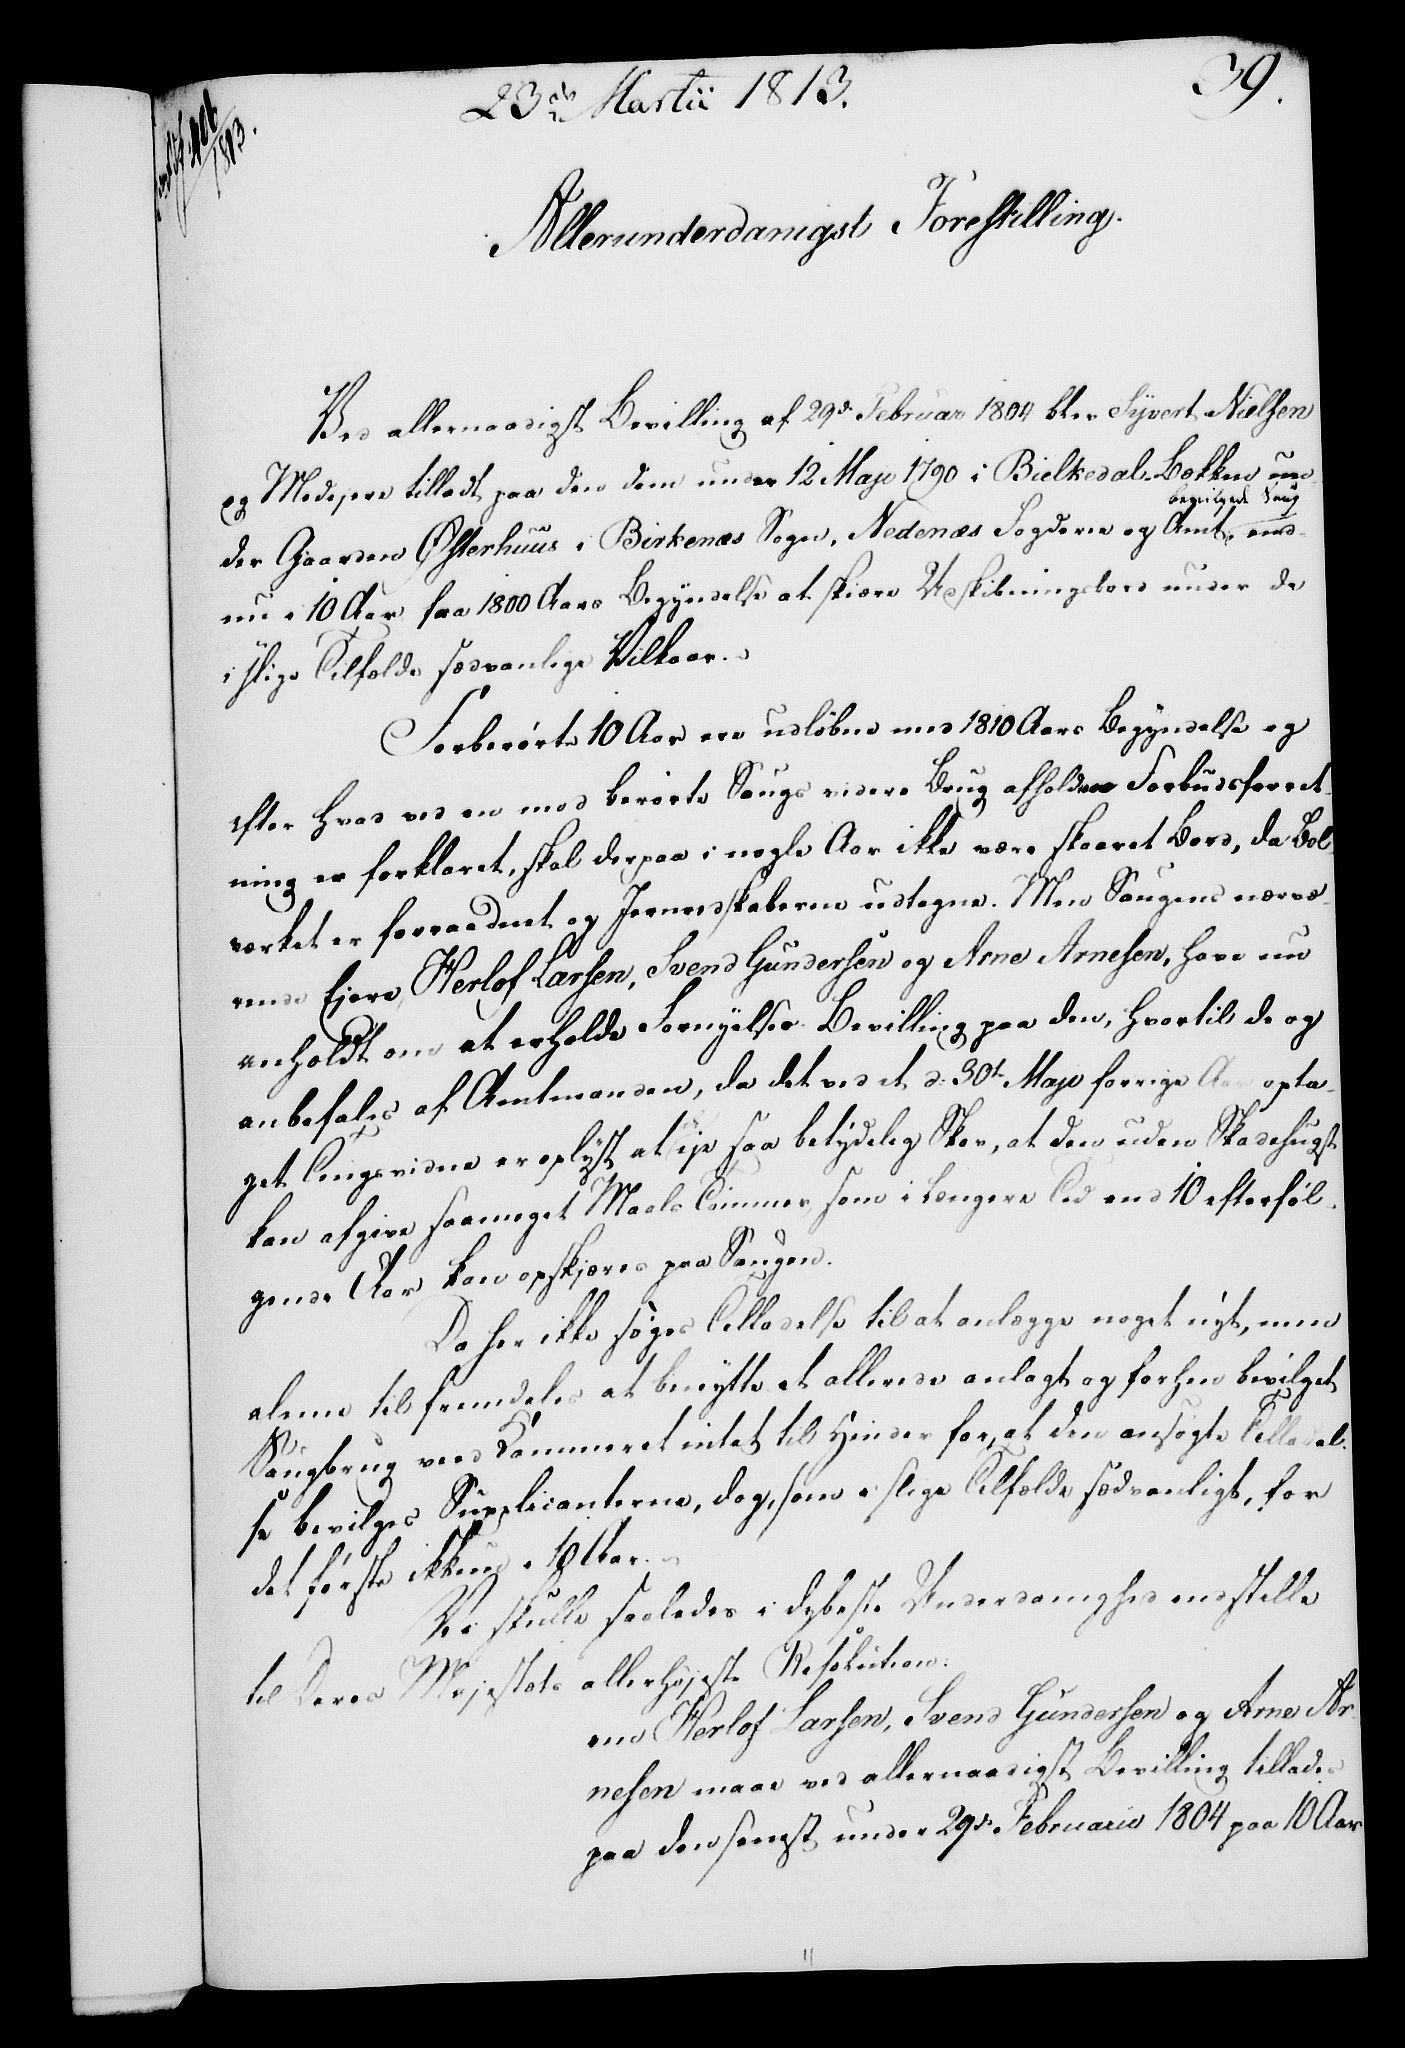 39.
23de Martii 1813.
406/1813.
Allerunderdanigst Forestilling.
Ved allernaadigst Bevilling af 29de Februar 1804 blev Syvert Nielsen
og Medejere tilladt paa den dem under 12 Maji 1790 i Bielkedal-Bekken un-
bevilgede Saug
der Gaarden Østerhuus i Birkenæs Sogn, Nedenæs Fogderie og Amt, end-
nu i 10 Aar fra 1800 Aars Begyndelse at skiære Udskibningsbord under de
i slige Tilfælde sædvanlige Vilkaar.
Forberørte 10 Aar ere udløbne med 1810 Aars Begyndelse og
efter hvad ved en mod berørte Saugs videre Brug afholden Forbudsforret-
ning er forklaret, skal derpaa i nogle Aar ikke være skaaret Bord, da Bol-
værket er forraadnet og Jernredskaberne udtagne. Men Saugens nærvæ-
rende Ejere, Herlof Larsen, Svend Gundersen og Arne Arnesen, have nu
anholdt om at erholde Fornyelses Bevilling paa den, hvortil de og
anbefales af Amtmanden, da det ved et d: 30te Maji forrige Aar opta-
get Tingsvidne er oplyst at eje saa betydelig Skov, at den uden Skadehugst
kan afgive saameget Maals Timmer, som i længere Tid end 10 efterføl-
gende Aar kan opskjæres paa Saugen.
Da her ikke søges Tilladelse til at anlægge noget nyt, men
alene til fremdeles at benytte et allerede anlagt og forhen bevilget
Saugbrug, veed Kammeret intet til Hinder for, at den ansøgte Tilladel-
se bevilges Supplicanterne, dog, som i slige Tilfælde sædvanligt, for
det første ikkun i 10 Aar.
Vi skulle saaledes i dybeste Underdanighed indstille
til Deres Majestæts allerhøjeste Resolution:
om Herlof Larsen, Svend Gundersen og Arne Ar-
nesen maae ved allernaadigst Bevilling tillades
paa den senest under 29de Februarii 1804 paa 10 Aar